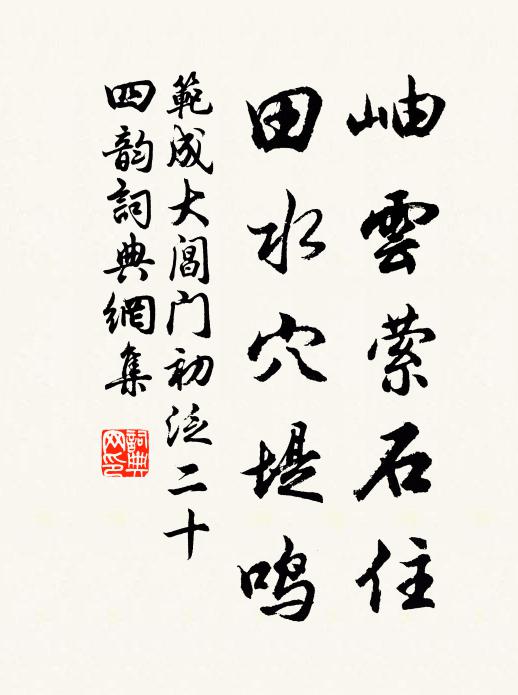 岫雲萦石住
田水穴堤鸣
範成大阊门初泛二十
四韵詞典網集
詞典
网印